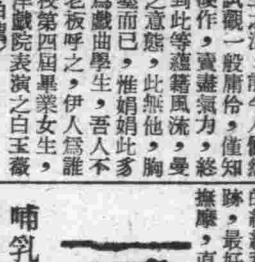 試觀一般庸伶，僅知
使作，賣盡氣力，終
到此等蘊藉風流，曼
之意態，此無他，胸
墨而已，惟娟娟此豸
爲戲曲學生，吾人不
老板呼之，伊人爲誰
校第四屆畢業女生，
洋戲院表演之白玉薇
跡，最好
撫摩，直
哺乳